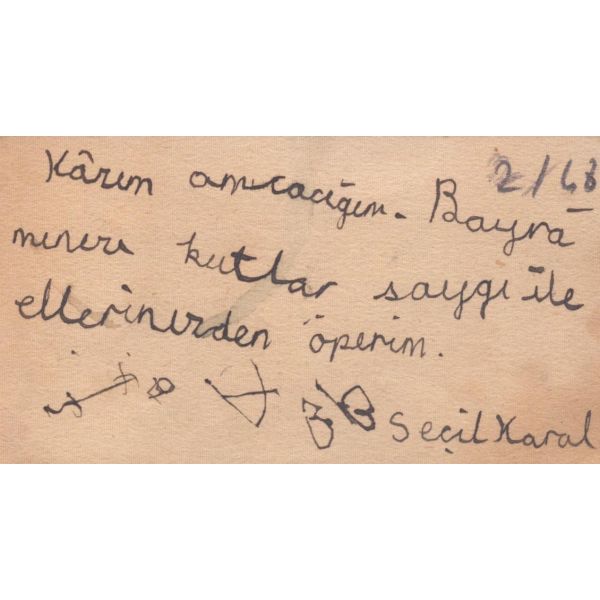 2/48
Kârım amcacığım. Bayra
mınızı kutlar saygı ile
ellerinizden öperim.
Seçil Karal